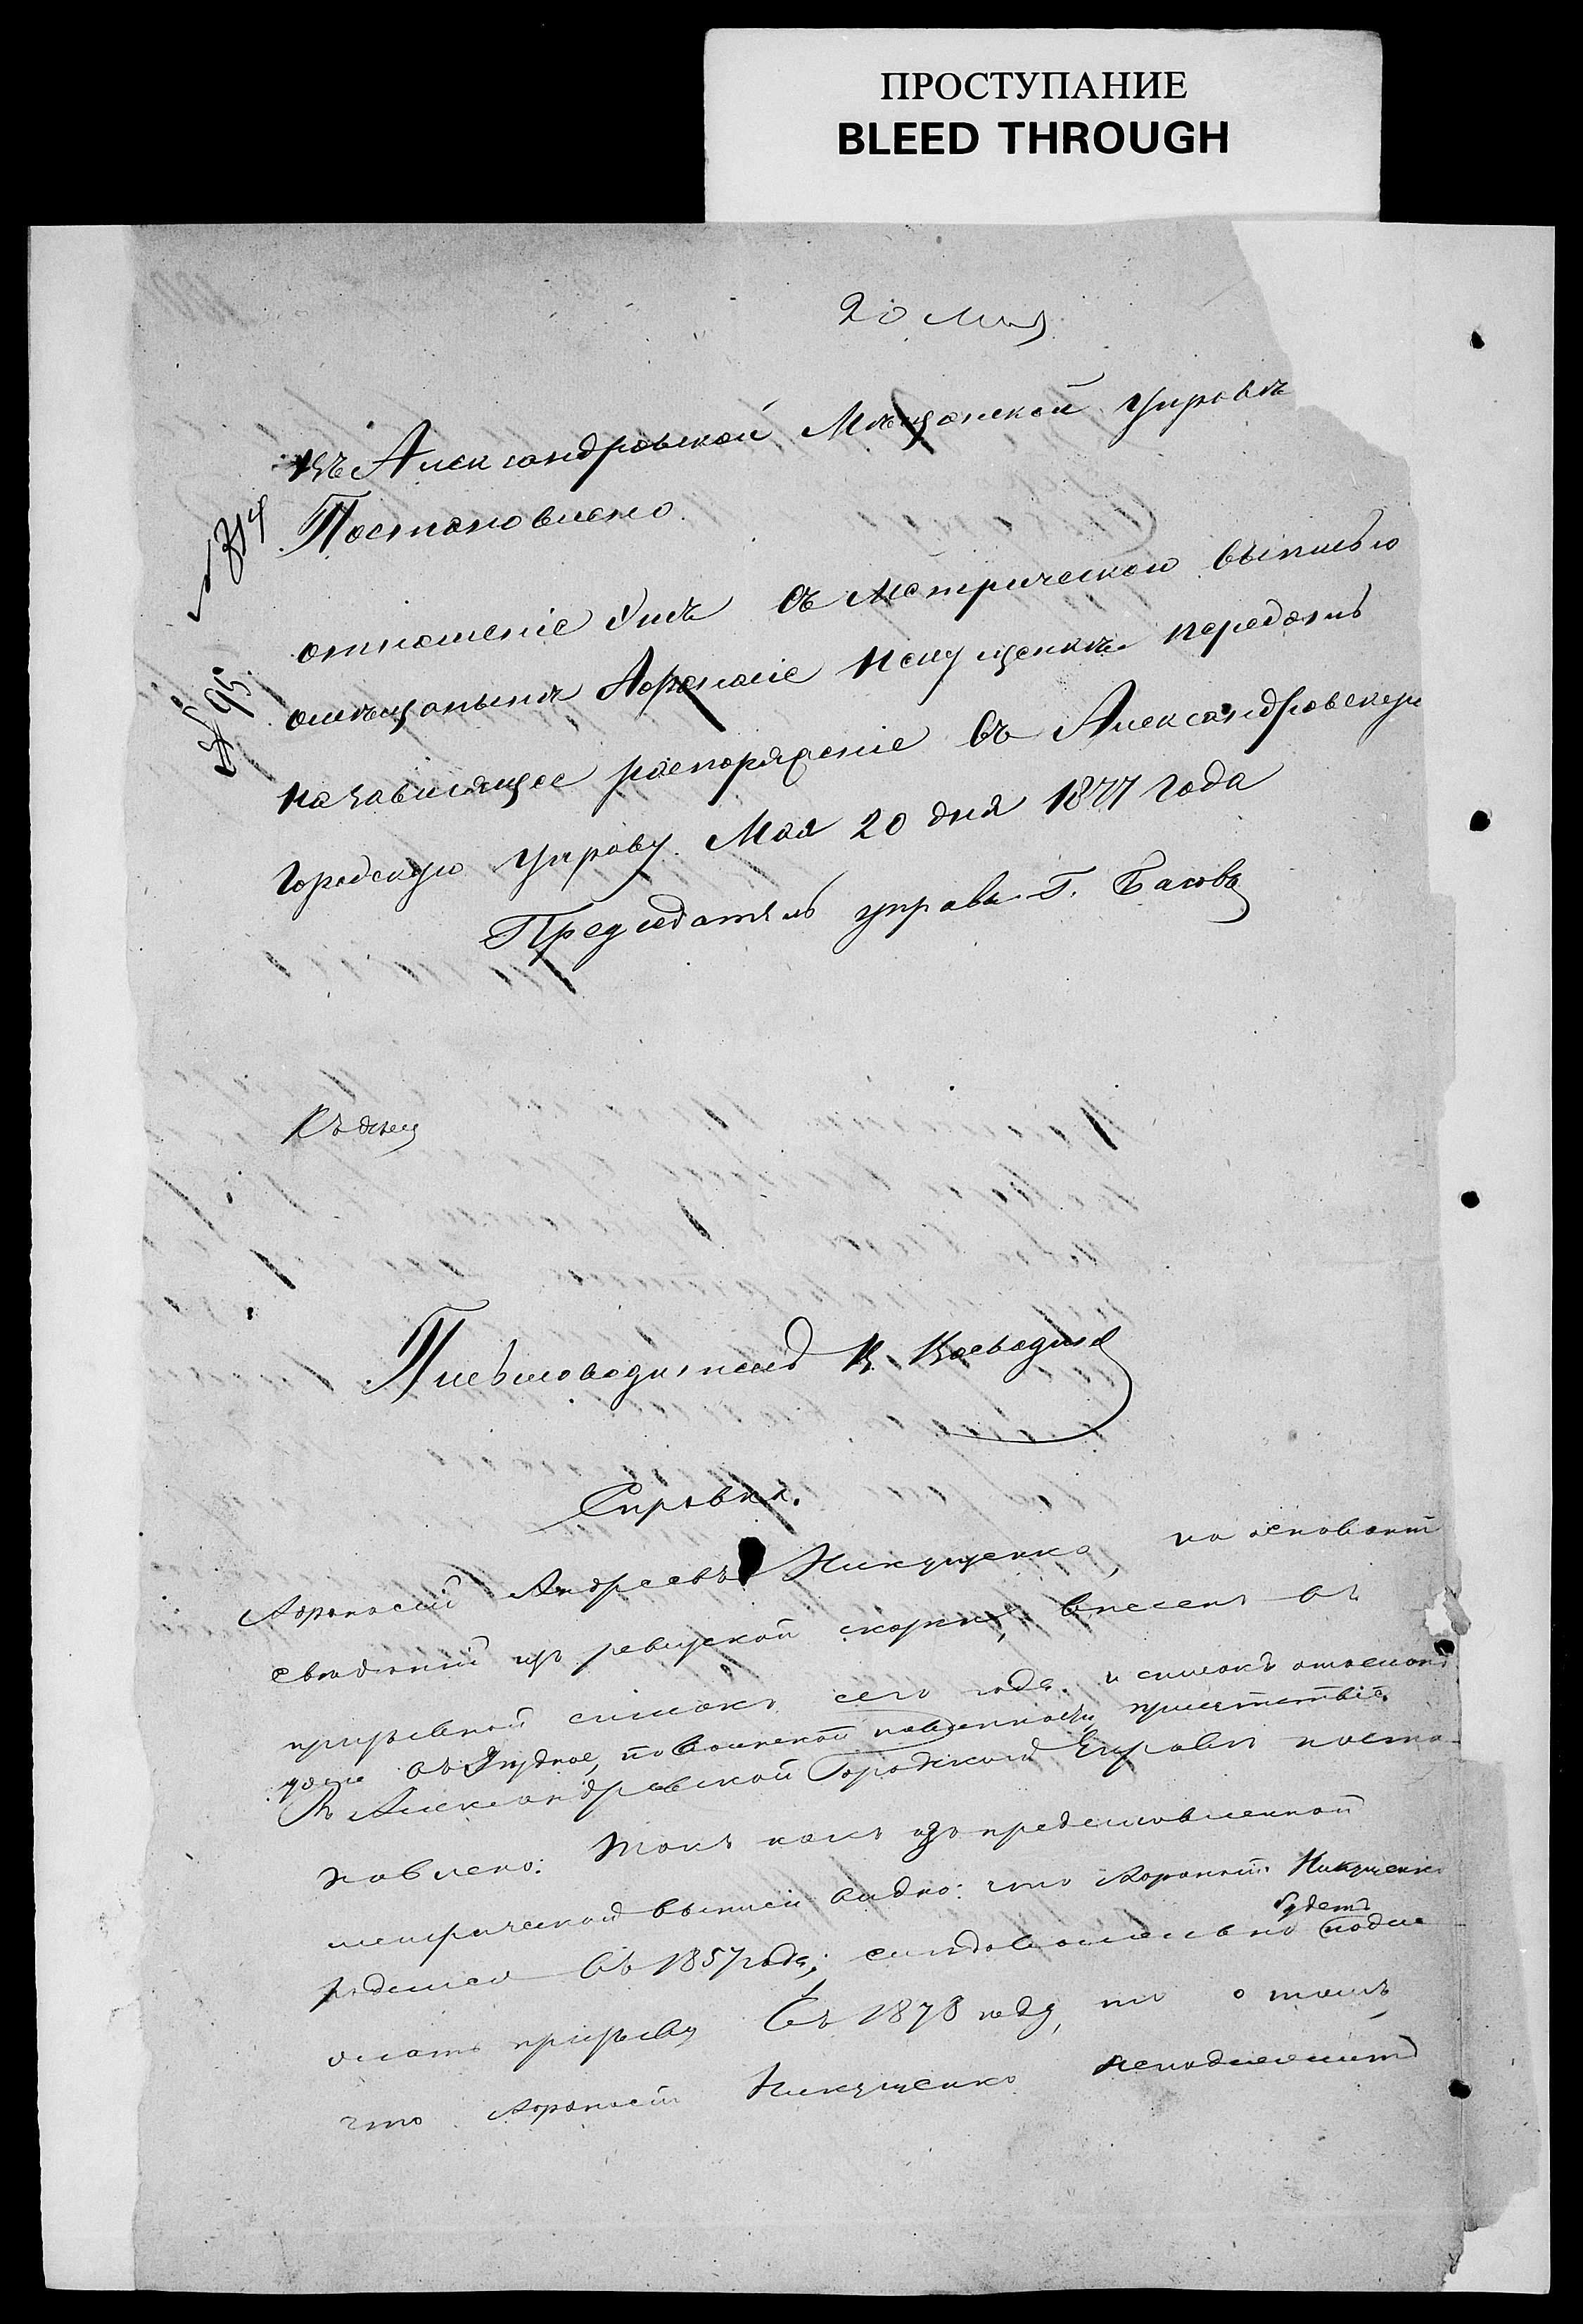 ПРОСТУПАНИЕ
BLEED THROUGH
20 Мая
Въ Александровской Мѣщанской Управѣ
Постановлено.
№ 314
отношеніе съ Метрическою выписью
омѣщанинѣ Афанасіе Некущенкѣ передать
№ 95.
на зависящее распоряженіе въ Александровскую
Городскую Управу. Мая 20 дня 1877 года
Предсѣдатель управы Г. Басовъ
Къ дѣлу
Письмоводитель К.
Справка.
Афонасій Андреевъ Никущенко, на основаніи
свѣдѣній изъ ревизской скорки, внесенъ въ
призывной списокъ сего года. и списокъ отосланъ
въ уѣздное, по воинской повинности присутствіе.
Въ Александровской Городской Управѣ поста-
новлено: Такъ какъ изъ представленной
метрической выписи видно: что Афонасій Никущенко
родился въ 1857 году; слѣдовательно будетъ подле
жать призыву въ 1878 году, то о томъ,
что Афонасій Никущенко неподлежитъ